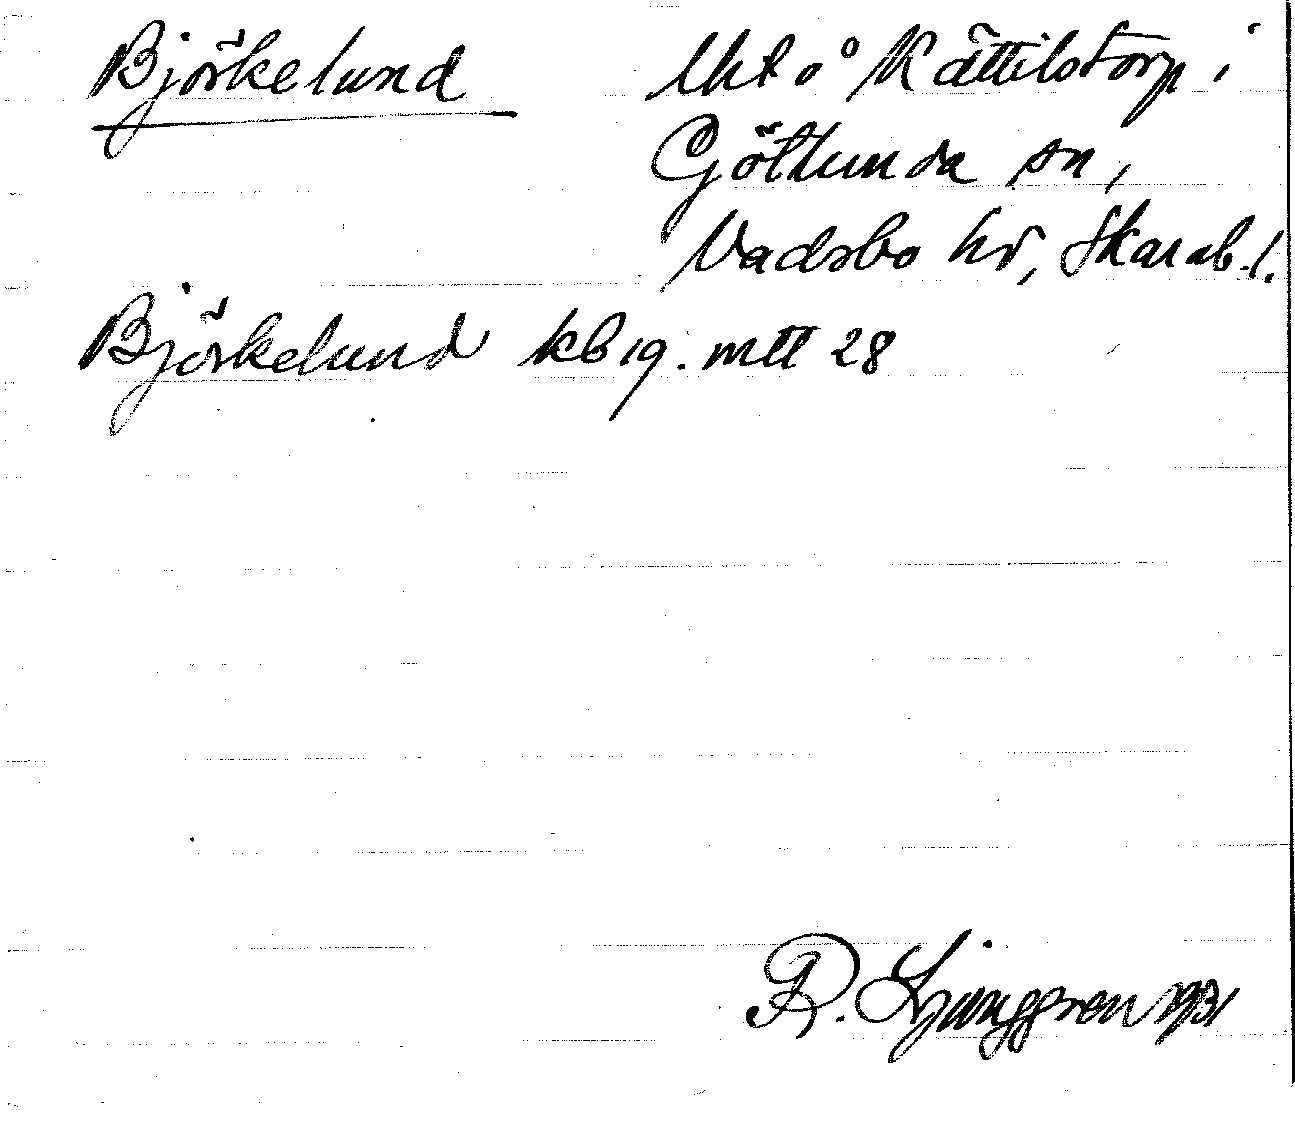 Björkelund
Uht å Kättilstorp i
Götlunda sn,
Vadsbo hd, Skarab. l.
Björkelund kb 19. mtt 28
R. Ljunggren 1931